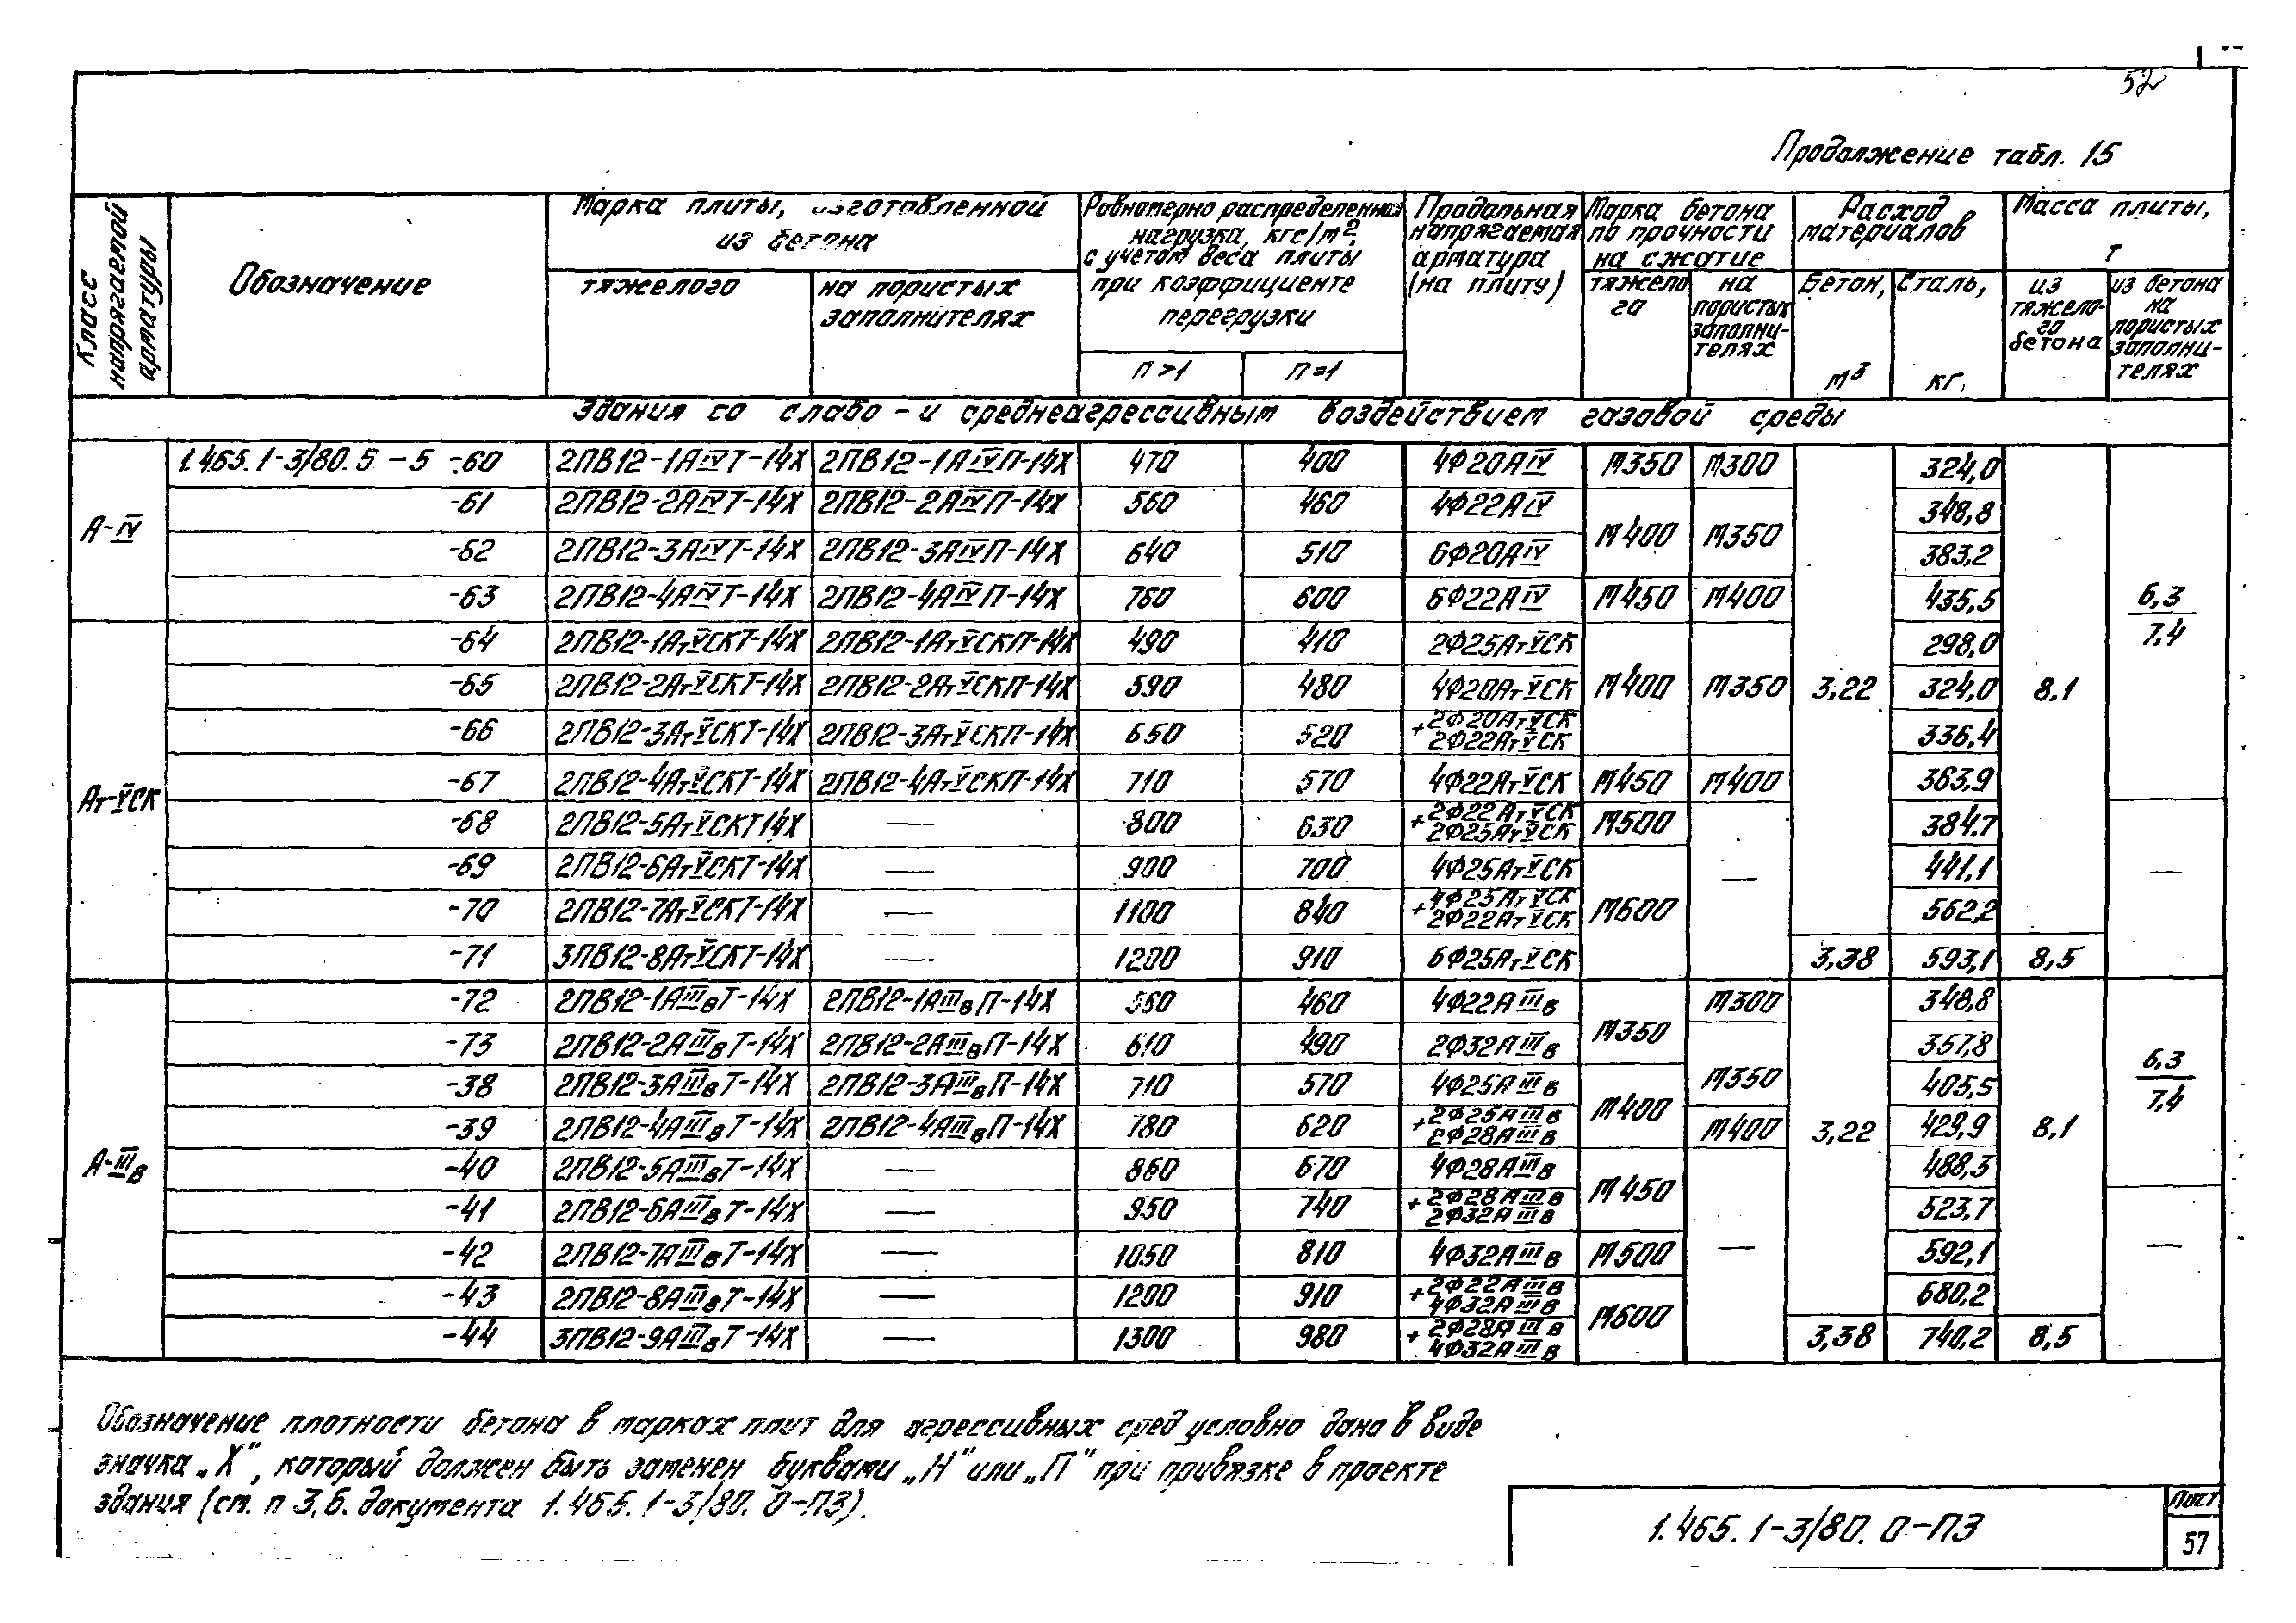 52
Продолжение табл. 15
Класс напрягаемой арматуры
Обозначение
Марка плиты, изготовленной из бетона
тяжелого
на пористых заполнителях
Равномерно распределенная нагрузка, кгс/м², с учетом веса плиты при коэффициенте перегрузки
п>1
п=1
Продольная напрягаемая арматура (на плиту)
Марка бетона по прочности на сжатие
тяжелого
на пористых заполнителях
Расход материалов
Бетон, м³
Сталь, кг.
Масса плиты, т
из тяжелого бетона
из бетона на пористых заполнителях
Здания со слабо - и среднеагрессивным воздействием газовой среды
А-IV
1.465.1-3/80.5 -5 -60 2ПВ12-1АIVТ-14Х 2ПВ12-1АIVП-14Х 470 400 4Ф20АIV М350 М300 324,0
-61 2ПВ12-2АIVТ-14Х 2ПВ12-2АIVП-14Х 560 460 4Ф22АIV М400 М350 348,8
-62 2ПВ12-3АIVТ-14Х 2ПВ12-3АIVП-14Х 640 510 6Ф20АIV 383,2
-63 2ПВ12-4АIVТ-14Х 2ПВ12-4АIVП-14Х 760 600 6Ф22АIV М450 М400 435,5 6,3/7,4
Ат-VСК
-64 2ПВ12-1АтVСКТ-14Х 2ПВ12-1АтVСКП-14Х 490 410 2Ф25АтVСК 298,0
-65 2ПВ12-2АтVСКТ-14Х 2ПВ12-2АтVСКП-14Х 590 480 4Ф20АтVСК М400 М350 3,22 324,0 8,1
-66 2ПВ12-3АтVСКТ-14Х 2ПВ12-3АтVСКП-14Х 650 520 2Ф20АтVСК + 2Ф22АтVСК 336,4
-67 2ПВ12-4АтVСКТ-14Х 2ПВ12-4АтVСКП-14Х 710 570 4Ф22АтVСК М450 М400 363,9
-68 2ПВ12-5АтVСКТ14Х — 800 630 2Ф22АтVСК + 2Ф25АтVСК М500 384,7
-69 2ПВ12-6АтVСКТ-14Х — 900 700 4Ф25АтVСК — 441,1 —
-70 2ПВ12-7АтVСКТ-14Х — 1100 840 4Ф25АтVСК + 2Ф22АтVСК М600 562,2
-71 3ПВ12-8АтVСКТ-14Х — 1200 910 6Ф25АтVСК 3,38 593,1 8,5
А-IIIв
-72 2ПВ12-1АIIIвТ-14Х 2ПВ12-1АIIIвП-14Х 560 460 4Ф22АIIIв М300 348,8
-73 2ПВ12-2АIIIвТ-14Х 2ПВ12-2АIIIвП-14Х 610 490 2Ф32АIIIв М350 357,8
-38 2ПВ12-3АIIIвТ-14Х 2ПВ12-3АIIIвП-14Х 710 570 4Ф25АIIIв М350 405,5 6,3/7,4
-39 2ПВ12-4АIIIвТ-14Х 2ПВ12-4АIIIвП-14Х 780 620 2Ф25АIIIв + 2Ф28АIIIв М400 М400 3,22 429,9 8,1
-40 2ПВ12-5АIIIвТ-14Х — 860 670 4Ф28АIIIв 488,3
-41 2ПВ12-6АIIIвТ-14Х — 950 740 2Ф28АIIIв + 2Ф32АIIIв М450 523,7
-42 2ПВ12-7АIIIвТ-14Х — 1050 810 4Ф32АIIIв М500 — 592,1 —
-43 2ПВ12-8АIIIвТ-14Х — 1200 910 2Ф22АIIIв + 4Ф32АIIIв 680,2
-44 3ПВ12-9АIIIвТ-14Х — 1300 980 2Ф28АIIIв + 4Ф32АIIIв М600 3,38 740,2 8,5
Обозначение плотности бетона в марках плит для агрессивных сред условно дана в виде
значка „Х", который должен быть заменен буквами „Н" или „П" при привязке в проекте
здания (ст. п 3.6. документа 1.465.1-3/80. 0-ПЗ).
1.465.1-3/80. 0-ПЗ
Лист
57